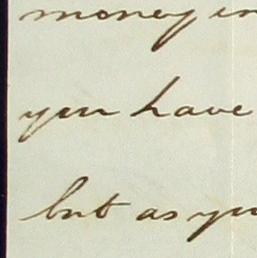 money in
you have
but as you